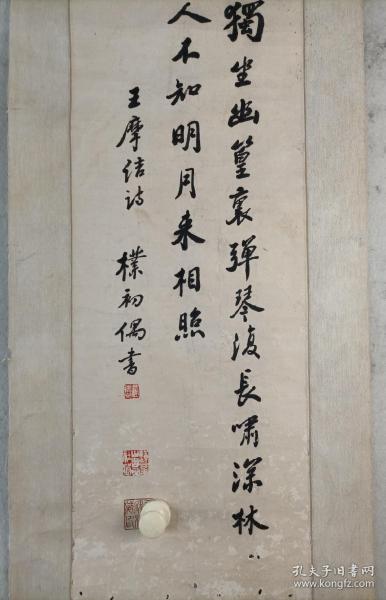 獨坐幽篁裏彈琴復長嘯深林
人不知明月来相照
王摩诘诗 樸初偶書
孔夫子旧书网